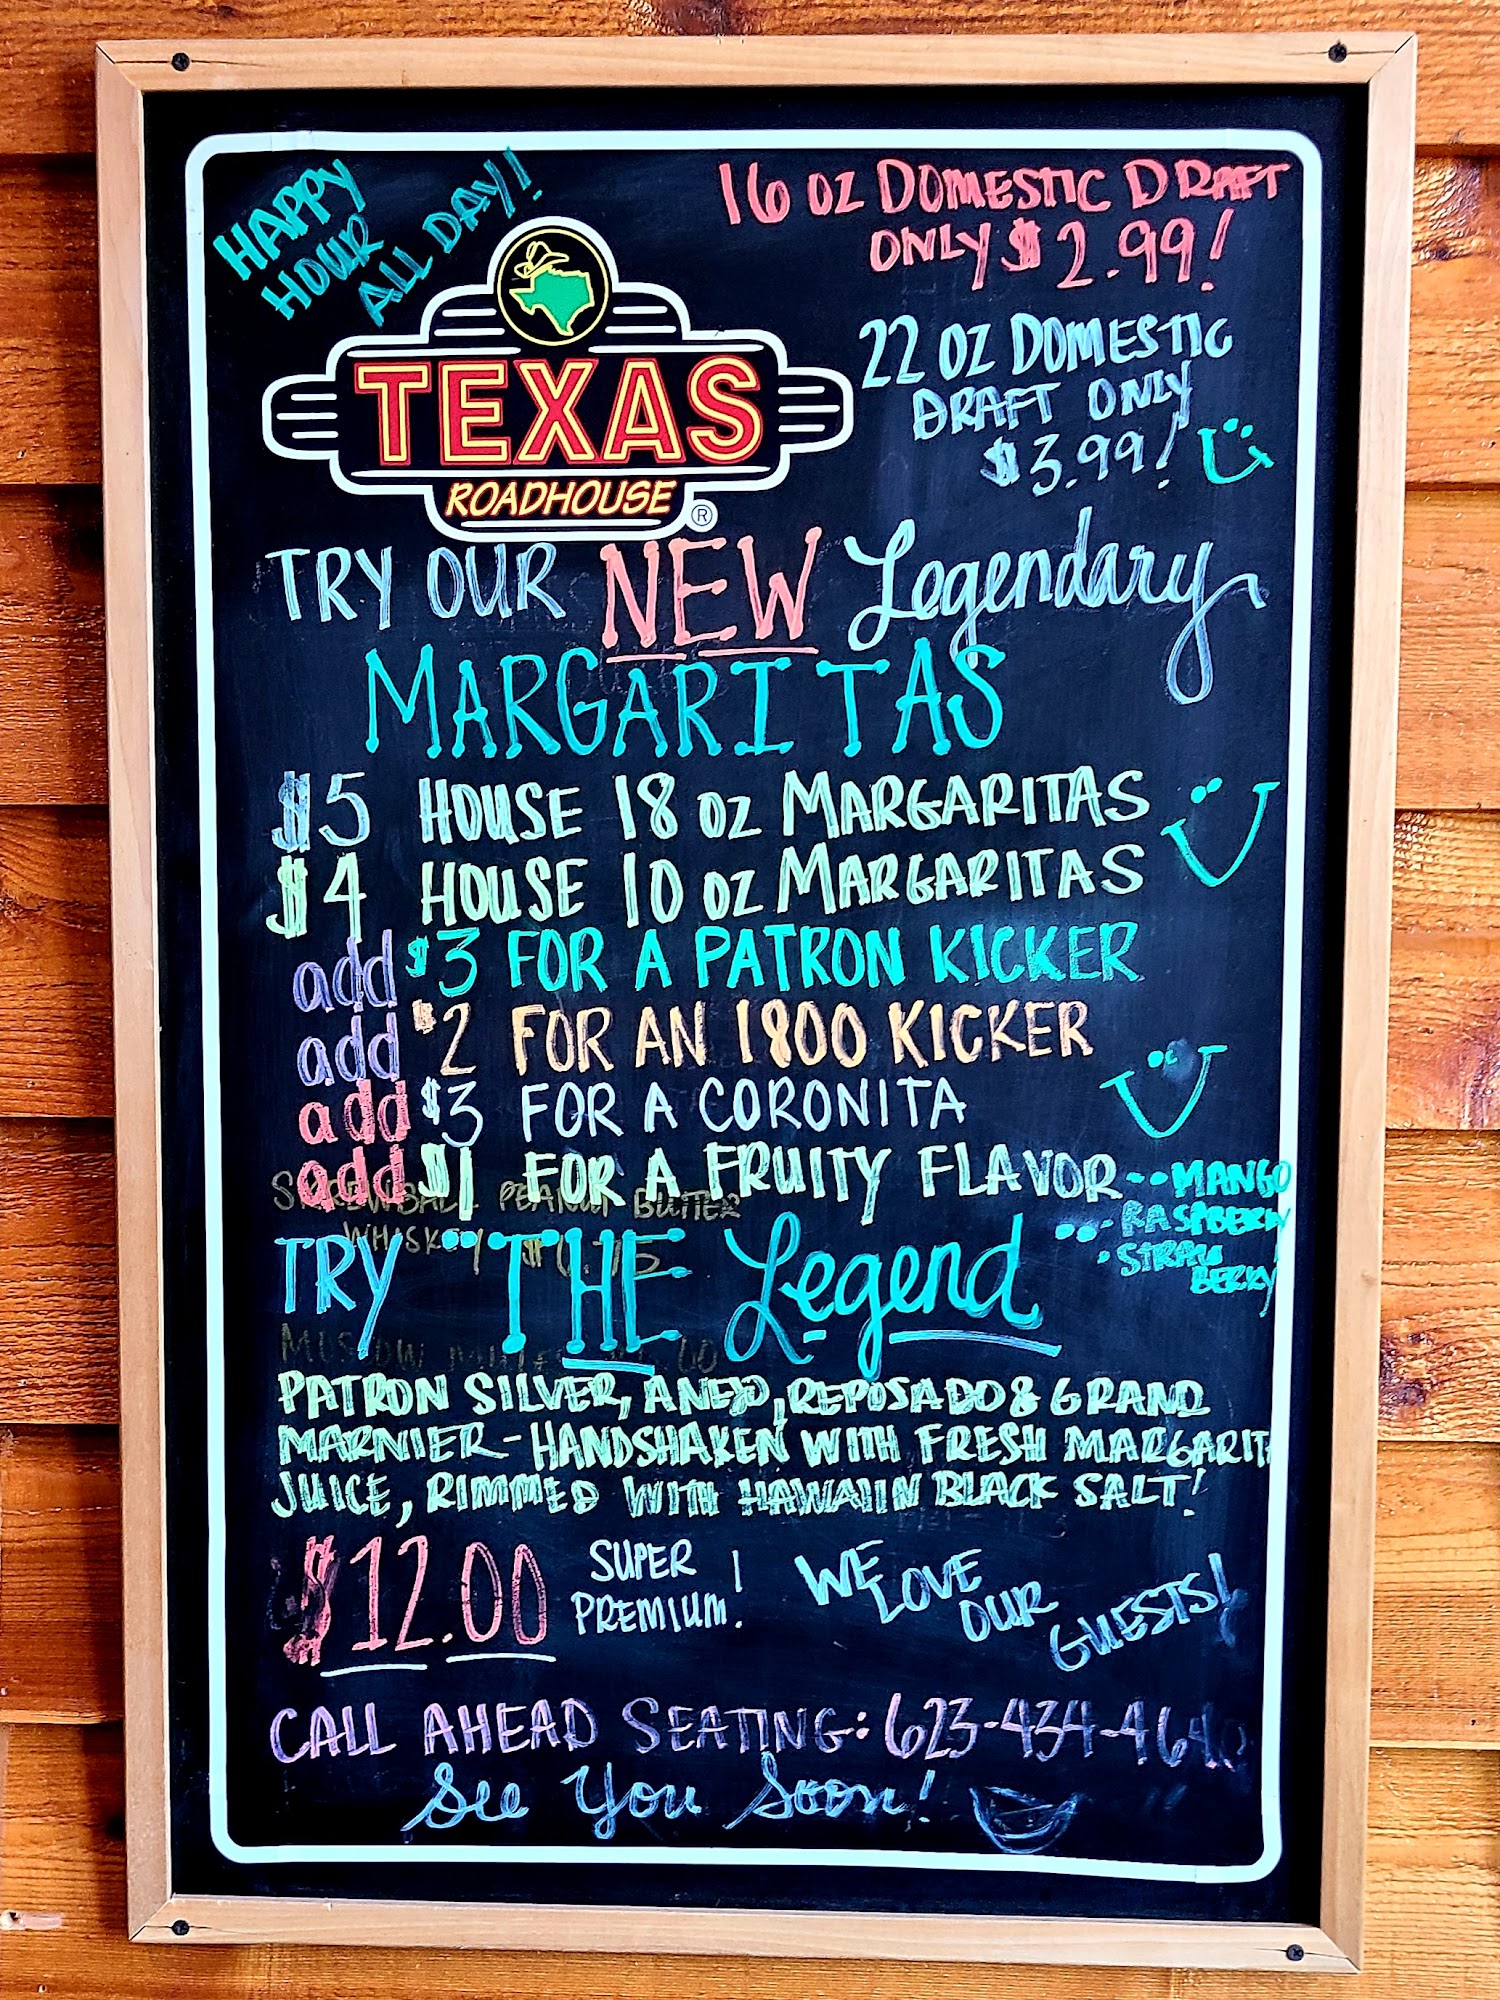 HAPPY
HOUR
ALL DAY!
16 OZ DOMESTIC DRAFT
ONLY $2.99!
22 OZ DOMESTIC
DRAFT ONLY
$3.99!
TEXAS
ROADHOUSE®
TRY OUR NEW Legendary
MARGARITAS
$5 HOUSE 18 OZ MARGARITAS
$4 HOUSE 10 OZ MARGARITAS
add $3 FOR A PATRON KICKER
add $2 FOR AN 1800 KICKER
add $3 FOR A CORONITA
add $1 FOR A FRUITY FLAVOR -- MANGO
- RASPBERRY
- STRAW
BERRY
PEANUT BUTTER
WHISKEY
TRY "THE Legend"
MOSCOW
PATRON SILVER, ANEJO, REPOSADO & GRAND
MARNIER - HANDSHAKEN WITH FRESH MARGARIT
JUICE, RIMMED WITH HAWAIIN BLACK SALT!
$12.00 SUPER
PREMIUM!
WE LOVE OUR GUESTS!
CALL AHEAD SEATING: 623-434-464
See You Soon!